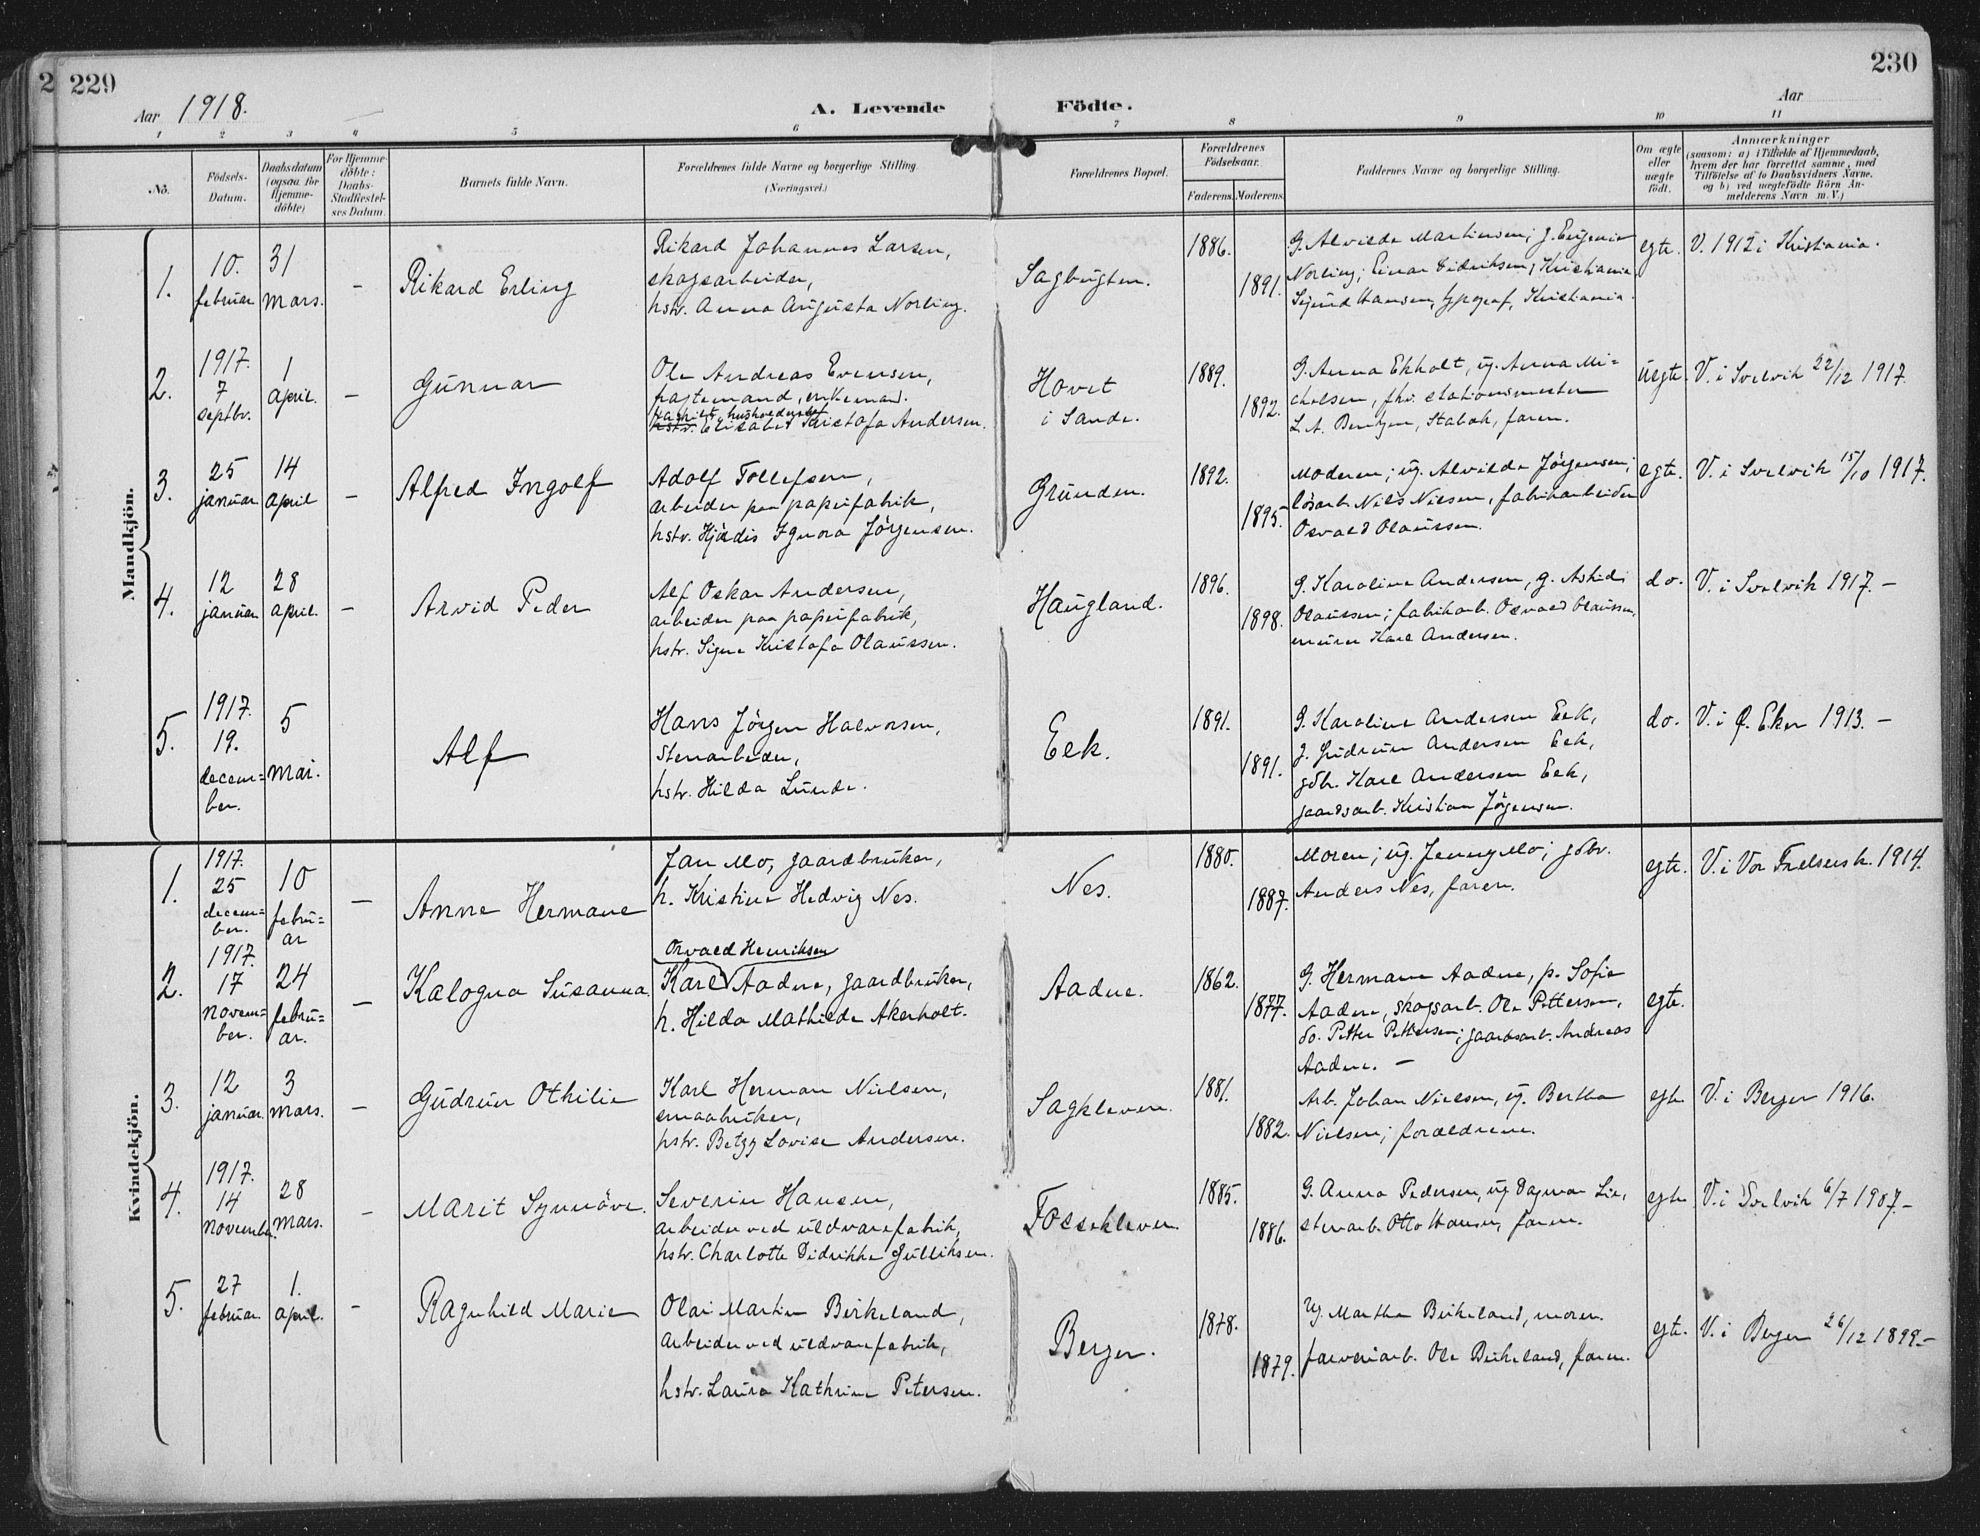 229
230
Aar 1918.
A. Levende Födte.
Aar
1 2 3 4 5 6 7 8 9 10 11
No.
Födsels-Datum.
Daabsdatum (ogsaa for Hjemme-döbte)
For Hjemme-döbte: Daabs-Stadfæstel-ses Datum.
Barnets fulde Navn.
Forældrenes fulde Navne og borgerlige Stilling. (Næringsvei.)
Forældrenes Bopæl.
Forældrenes Födselsaar.
Faderens. Moderens.
Faddernes Navne og borgerlige Stilling.
Om ægte eller uægte födt.
Anmærkninger (saasom: a) i Tilfælde af Hjemmedaab, hvem der har forrettet samme, med Tilföielse af to Daabsvidners Navne, og b) ved uægtefödte Börn An-melderens Navn m. V.)
Mandkjön.
1.
10. februar
31 mars.
–
Rikard Erling
Rikard Johannes Larsen,
skogsarbeider,
hstr. Anna Augusta Norling.
Sagbugten.
1886.
1891.
G. Alvilde Martinsen; g. Eugenie
Norling; Einar Didriksen, Kristiania
Sigurd Hansen, typograf, Kristiania.
egte.
V. 1912 i Kristiania.
2.
1917.
7 septbr.
1 april.
–
Gunnar
Ole Andreas Evensen,
enkemand.
husholderske
hstr. Elisabet Kristofa Andersen.
Hovet
i Sande.
1889.
1892.
G. Anna Ekholt, ug. Anna Mi=
chelsen, fhv. stationsmester
L. A. Bentzen, Stabæk, faren.
uegte.
V. i Svelvik 22/12 1917.
3.
25 januar
14 april
–
Alfred Ingolf
Adolf Tollefsen,
arbeider paa papirfabrik,
hstr. Hjørdis Ignora Jörgensen.
Grunden.
1892.
1895.
Moderen; ug. Alvilde Jörgensen;
lösarb. Nils Nilsen, fabrikarbeider
Osvald Olaussen.
egte.
V. i Svelvik 15/10 1917.
4.
12 januar
28 april.
–
Arvid Peder
Alf Oskar Andersen,
arbeider paa papirfabrik,
hstr. Signe Kristofa Olaussen.
Haugland.
1896.
1898.
G. Karoline Andersen, g.
Olaussen; fabrikarb. Osvald Olaussen,
murer Karl Andersen.
do.
V. i Svelvik 1917. –
5.
1917.
19. decem=
ber.
5 mai.
Alf
Hans Jörgen Halvorsen,
Stenarbeider,
hstr. Hilda Lunde.
Eek.
1891.
1891.
G. Karoline Andersen Eek,
g. Gudrun Andersen Eek,
gdbr. Karl Andersen Eek,
gaardsarb. Kristian Jörgensen.
do.
V. i Ø. Eker 1913. –
Kvindekjön.
1.
1917.
25 decem=
ber.
10 febru=
ar
–
Anne Hermane
Jan Mo, gaardbruker,
h. Kristine Hedvig Nes.
Nes.
1880.
1887.
Moren; ug. Jenny Mo; gdbr.
Anders Nes, faren.
egte.
V. i Vor Frelsers k. 1914.
2.
1917.
17 novem=
ber.
24 febru=
ar.
–
Kalogna Susanna
Osvald Henriksen
Karl Aadne, gaardbruker,
h. Hilda Mathilde Akerholt.
Aadne.
1862.
1877.
G. Hermane Aadne, p. Sofie
Aadne, skogsarb. Ole Pettersen,
do. Petter Pettersen; gaardsarb. Andreas
Aadne. –
egte.
3.
12 januar.
3 mars.
–
Gudrun Othilie
Karl Herman Nielsen,
smaabruker,
hstr. Betzy Lovise Andersen.
Sagkleven.
1881.
1882.
Arb. Johan Nielsen, ug. Bertha
Nielsen; forældrene.
egte
V. i Berger 1916.
4.
1917.
14 november.
28 mars.
–
Marit Synnöve
Severin Hansen,
arbeider ved uldvarefabrik,
hstr. Charlotte Didrikke Gulliksen.
Fossekleven
1885.
1886.
G. Anna Pedersen, ug. Dagmar Lie,
stenarb. Otto Hansen, faren.
egte
V. i Svelvik 6/7 1907. –
5.
27 februar.
1. april.
–
Ragnhild Marie
Olai Martin Birkeland,
arbeider ved uldvarefabrik,
hstr. Laura Kathrine Petersen.
Berger.
1878.
1879.
Ug. Martha Birkeland, moren.
farveriarb. Ole Birkeland, faren.
egte.
V. i Berger 26/12 1899. –